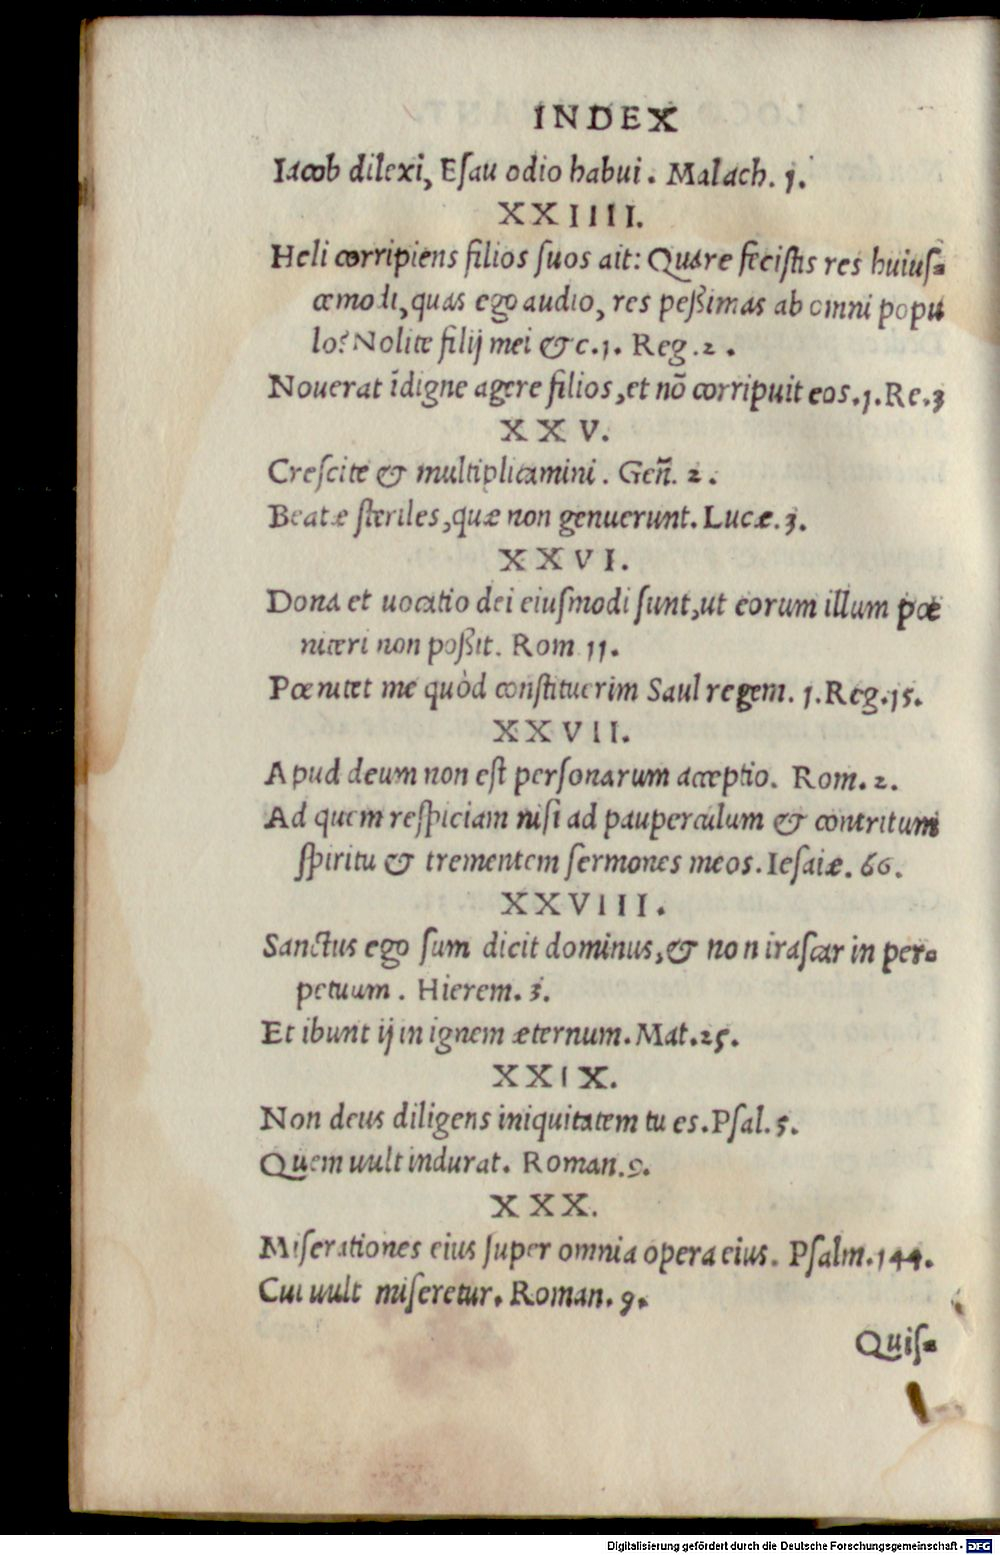 INDEX
Iacob dilexi, Eſau odio habui. Malach. 1.
XXIIII.
Heli corripiens filios ſuos ait: Quáre feciſtis res huiuſ-
cemodi, quas ego audio, res peßimas ab omni popu
lo? Nolite filij mei &c. 1. Reg. 2.
Nouerat ĩdigne agere filios, et nõ corripuit eos. 1. Re. 3
XXV.
Creſcite & multiplicamini. Geñ. 2.
Beatæ ſteriles, quæ non genuerunt. Lucæ. 3.
XXVI.
Dona et uocatio dei eiuſmodi ſunt, ut eorum illum pœ
nitere non poßit. Rom 11.
Pœnitet me quòd conſtituerim Saul regem. 1. Reg. 15.
XXVII.
Apud deum non eſt perſonarum acceptio. Rom. 2.
Ad quem reſpiciam niſi ad pauperculum & contritum
ſpiritu & trementem ſermones meos. Ieſaiæ. 66.
XXVIII.
Sanctus ego ſum dicit dominus, & non iraſcar in per-
petuum. Hierem. 3.
Et ibunt ij in ignem æternum. Mat. 25.
XXIX.
Non deus diligens iniquitatem tu es. Pſal. 5.
Quem uult indurat. Roman. 9.
XXX.
Miſerationes eius ſuper omnia opera eius. Pſalm. 144.
Cui uult miſeretur. Roman. 9.
Quiſ-
Digitalisierung gefördert durch die Deutsche Forschungsgemeinschaft - DFG